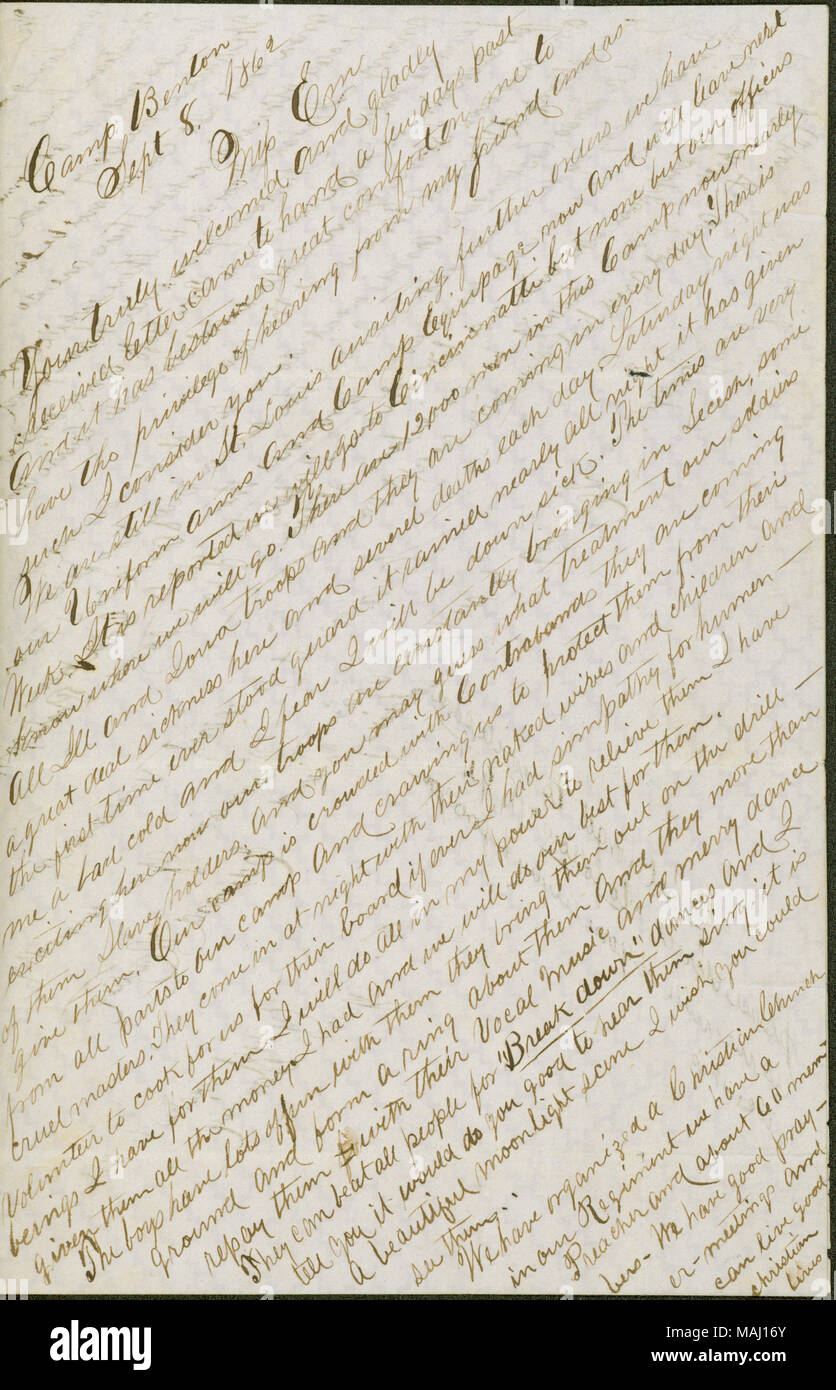 Camp Benton
Sept 8, 1862
Miss Em
Your truly welcomed and gladly
received letter came to hand a few days past
and it has bestowed great comfort on me to
have the privilege of hearing from my friend and as
such I consider you.
We are still in St. Louis awaiting further orders we have
our Uniform arms and Camp Equipage now and will leave next
Week. It is reported we will go to Cincinnatti but none but our officers
know where we will go. There are 12000 men in this Camp now nearly
All Ill and Iowa troops and they are coming in every day. There is
a great deal sickness here and several deaths each day. Saturday night was
the first time ever stood guard it rained nearly all night it has given
me a bad cold and I fear I will be down sick. The times are very
exciting here now our troops are constantly bringing in Secesh, some
of them Slave holders, and you may guess what treatment our soldiers
give them. Our camp is crowded with Contrabands they are coming
from all parts to our camp and craving us to protect them from their
cruel masters. They come in at night with their naked wives and children and
Volunteer to cook for us for their board if ever I had simpathy for human-
beings I have for them I will do all in my power to relieve them I have
given them all the money I had and we will do our best for them.
The boys have lots of fun with them they bring them out on the drill-
ground and form a ring about them and they more than
repay them with their Vocal Music and merry dance
They can beat all people for "Break down" dances and I
tell you it would do you good to hear them sing it is
a beautiful moonlight scene I wish you could
see them.
We have organized a Christian Church
in our Regiment we have a
Preacher and about 60 mem-
bers- We have good pray-
er-meetings and
can live good
christian
lives
alamy
alamy
Image ID: MAJ16Y
www.alamy.com